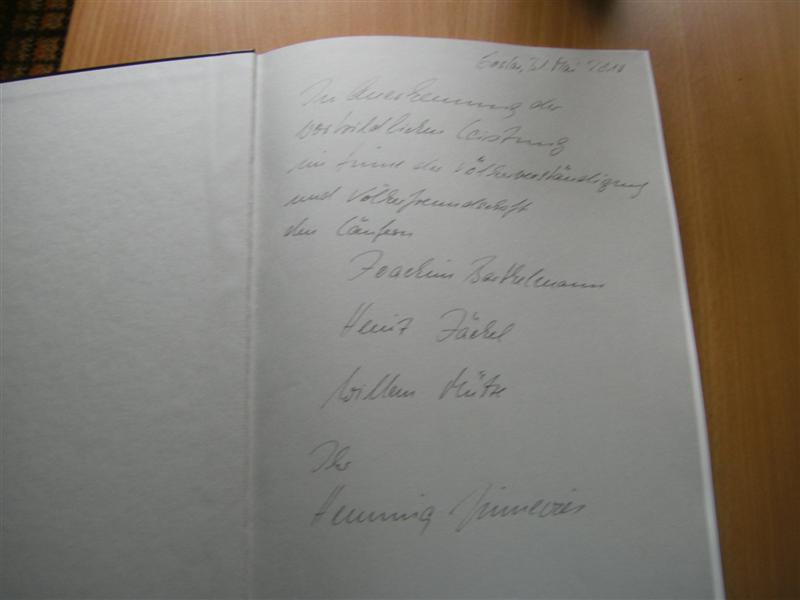 Goslar, Mai 2010
In Anerkennung der
vorbildlichen Leistung
im Sinne der Völkerverständigung
und Völkerfreundschaft
den Läufern
Joachim Barthelmann
Heinz Jäckel
Willem Mütze
Ihr
Henning